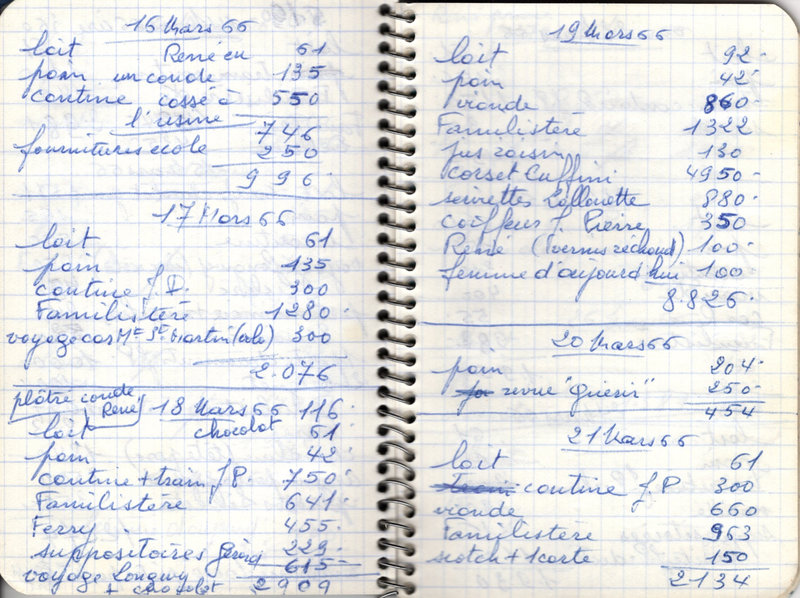 16 Mars 66
lait René eu 61
pain un coude 135
cantine cassé à 550
l'usine 746
fournitures école 250
996
17 Mars 66
lait 61
pain 135
cantine J.P. 300
Familistère 1280
voyage cars Mt St Martin 300
2.076
plâtre coude René
18 Mars 66 116
lait chocolat 61
pain 42
cantine + train J.P. 750
Familistère 641
Ferry 455
suppositoires 229
voyage Longwy 615
+ chocolat 2909
19 Mars 66
lait 92
pain 42
viande 860
Familistère 1322
jus raisin 130
corset Cuffini 4950
serviettes Lallouette 880
coiffeur J. Pierre 350
René (vernis réchaud) 100
femme d'aujourd'hui 100
8.826
20 Mars 66
pain 204
revue "guérir" 250
454
21 Mars 66
lait 61
cantine J.P 300
viande 660
Familistère 963
scotch + 1 carte 150
2134